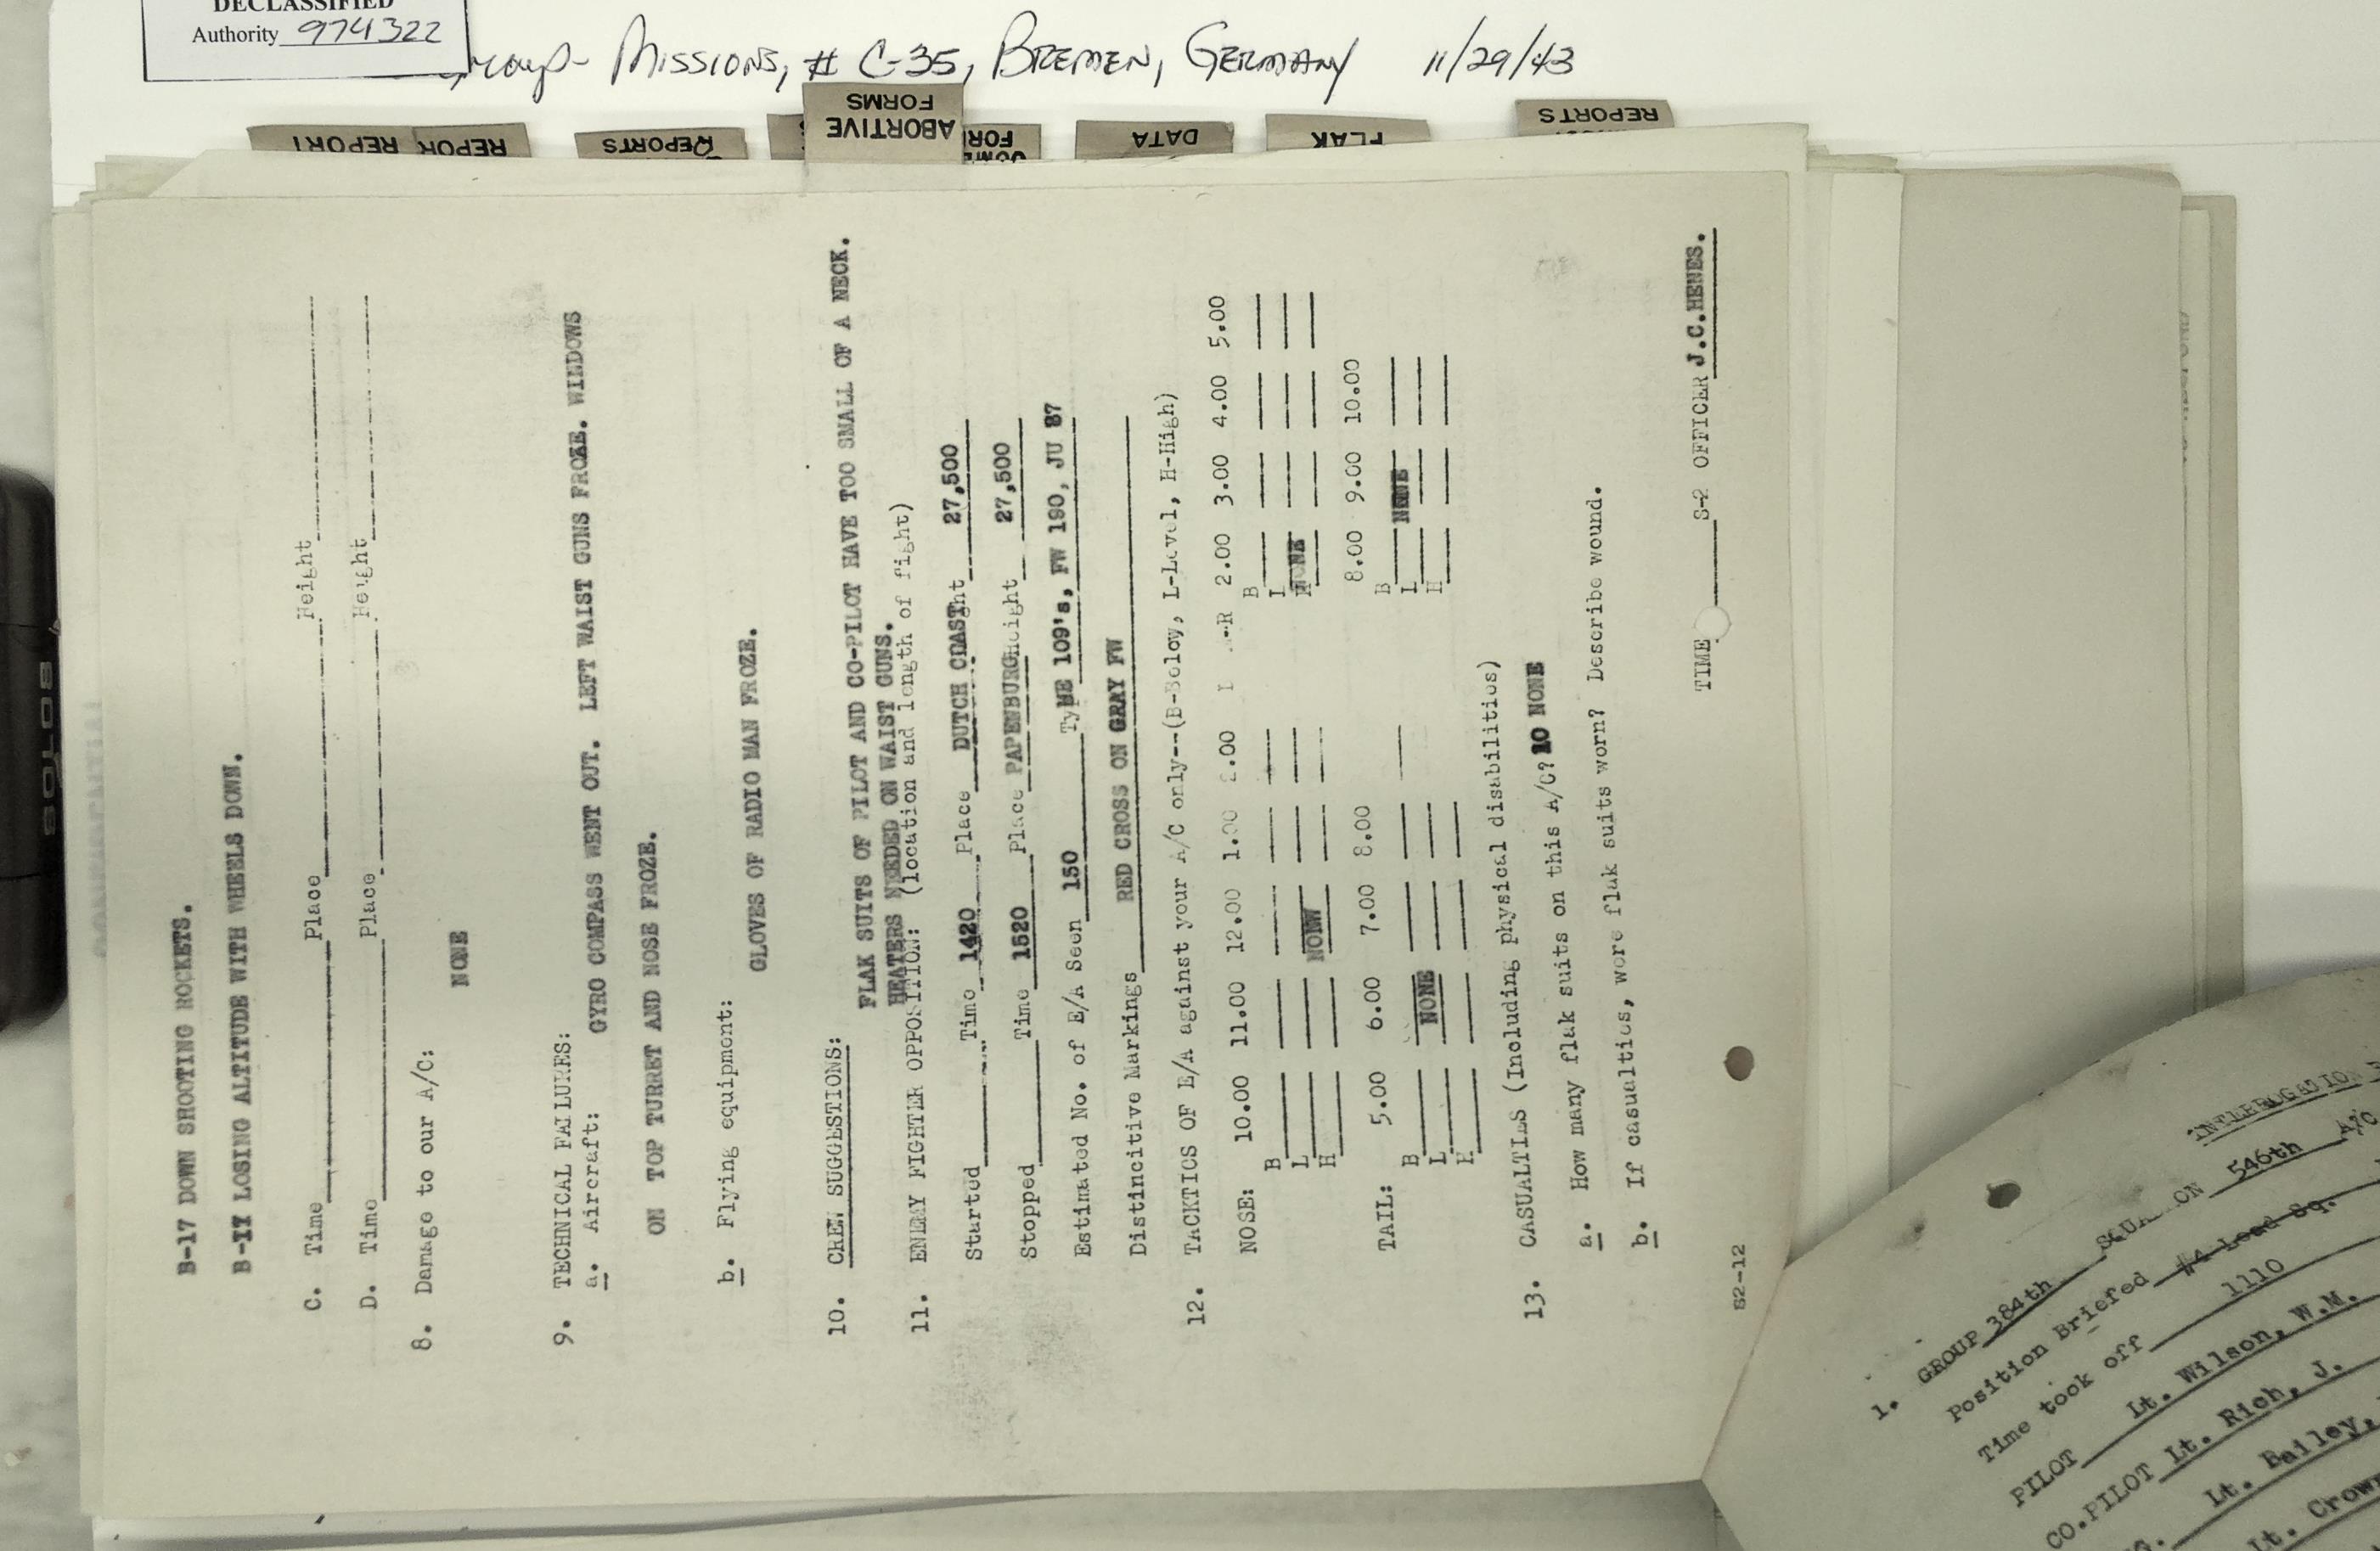 DECLASSIFIED
Authority 974322
Group- Missions, # C-35, Bremen, Germany 11/29/43
REPORT
REPORT
REPOR
REPORTS
ABORTIVE
FORMS
FOR
DATA
FLAK
REPORTS
B-17 DOWN SHOOTING ROCKETS.
B-17 LOSING ALTITUDE WITH WHEELS DOWN.
C. Time Place Height
D. Time Place Height
8. Damage to our A/C:
NONE
9. TECHNICAL FAILURES:
a. Aircraft: GYRO COMPASS WENT OUT. LEFT WAIST GUNS FROZE. WINDOWS
ON TOP TURRET AND NOSE FROZE.
b. Flying equipment:
GLOVES OF RADIO MAN FROZE.
10. CREW SUGGESTIONS:
FLAK SUITS OF PILOT AND CO-PILOT HAVE TOO SMALL OF A NECK.
HEATERS NEEDED ON WAIST GUNS.
11. ENEMY FIGHTER OPPOSITION: (location and length of fight)
Started Time 1420 Place DUTCH COAST ht 27,500
Stopped Time 1520 Place PAPENBURG Height 27,500
Estimated No. of E/A Seen 150 Type ME 109's, FW 190, JU 87
Distincitive Markings RED CROSS ON GRAY FW
12. TACKTICS OF E/A against your A/C only--(B-Below, L-Level, H-High)
NOSE: 10.00 11.00 12.00 1.00 2.00 R 2.00 3.00 4.00 5.00
B B
L L NONE
H NONE
TAIL: 5.00 6.00 7.00 8.00 8.00 9.00 10.00
B B
L NONE L NONE
H H
13. CASUALTIES (Including physical disabilities)
a. How many flak suits on this A/C? 10 NONE
b. If casualties, were flak suits worn? Describe wound.
TIME S-2 OFFICER J.C.HENES.
S2-12
INTERROGATION
1. GROUP 384th SQUADRON 546th A/C
Position Briefed #4 Lead Sq.
Time took off 1110
PILOT Lt. Wilson, W.M.
CO.PILOT Lt. Rich, J.
Lt. Bailey,
Lt. Crow